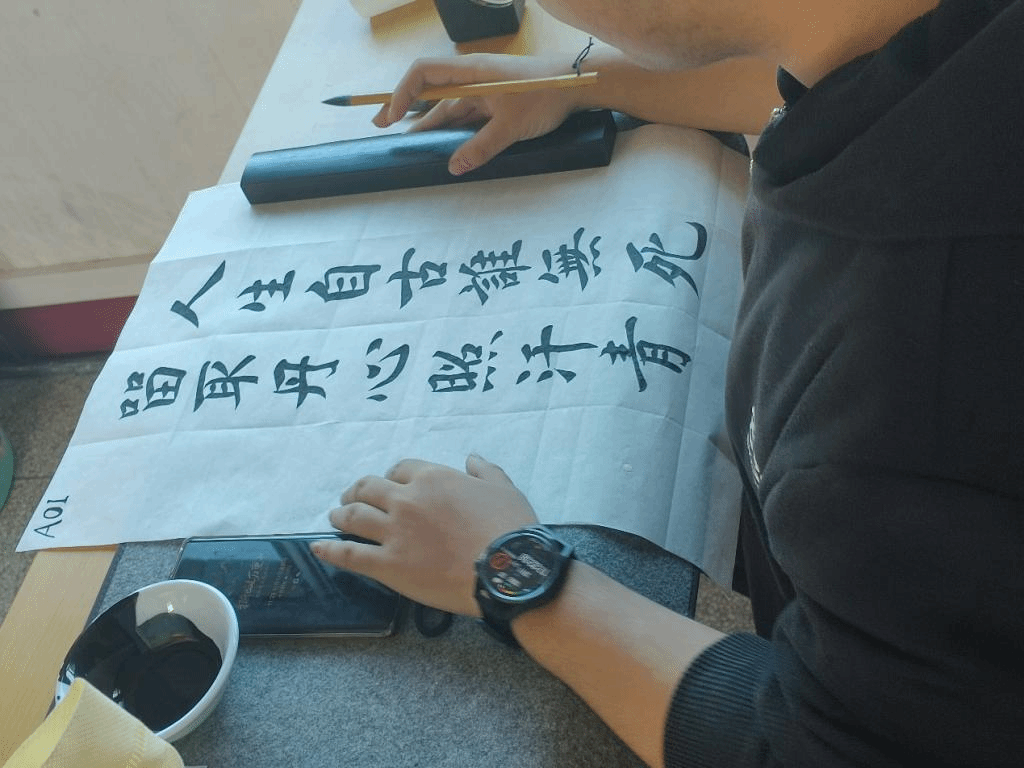 人生自古誰無死
留取丹心照汗青
A01